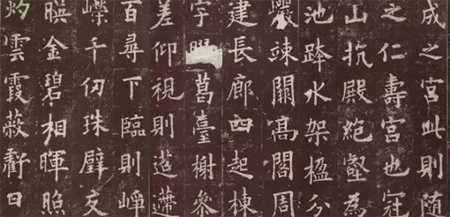 成之宮此則隨
之仁壽宮也冠
山抗殿絕壑為
池跨水架楹分
巖竦闕高閣周
建長廊四起棟
宇膠葛臺榭參
差仰視則迢遰
百尋下臨則崢
嶸千仞珠璧交
映金碧相暉照
灼雲霞蔽虧日